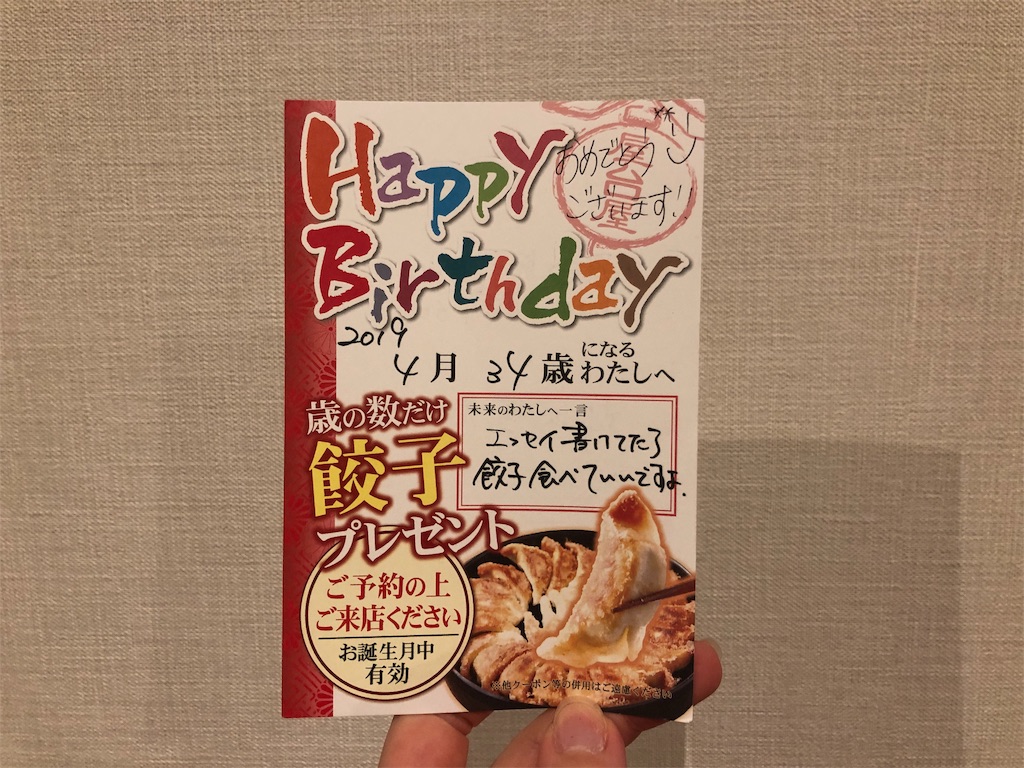 Happy
おめでとう
ございます!!
屋台屋
Birthday
2019
4月 34歳になるわたしへ
歳の数だけ
餃子
プレゼント
未来のわたしへ一言
エッセイ書けてたら
餃子食べていいですよ.
ご予約の上
ご来店ください
お誕生月中
有効
※他クーポン等の併用はご遠慮ください